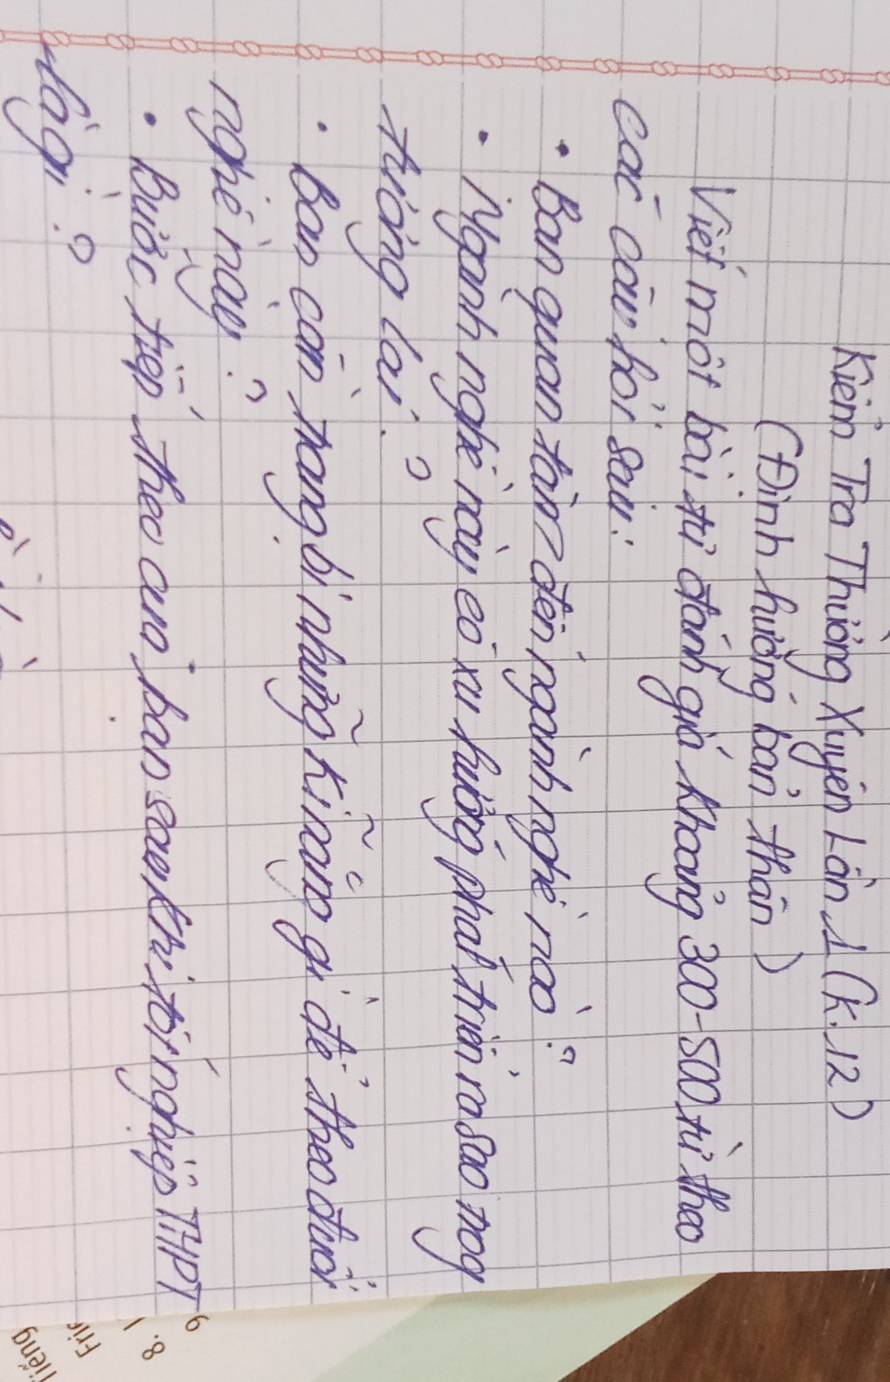 Kiểm Tra Thường Xuyên Lần 1 (K.12)
(Định hướng bản thân)
Viết một bài tự đánh giá khoảng 300-500 từ theo
các câu hỏi sau:
• Bạn quan tâm đến ngành nghề nào?
• Ngành nghề này có xu hướng phát triển ra sao trong
tương lai?
• Bạn cần trang bị những kĩ năng gì để theo đuổi
nghề này?
• Bước tiếp theo của bạn sau khi tốt nghiệp THPT
là gì?
9
8. 1
Tiếng